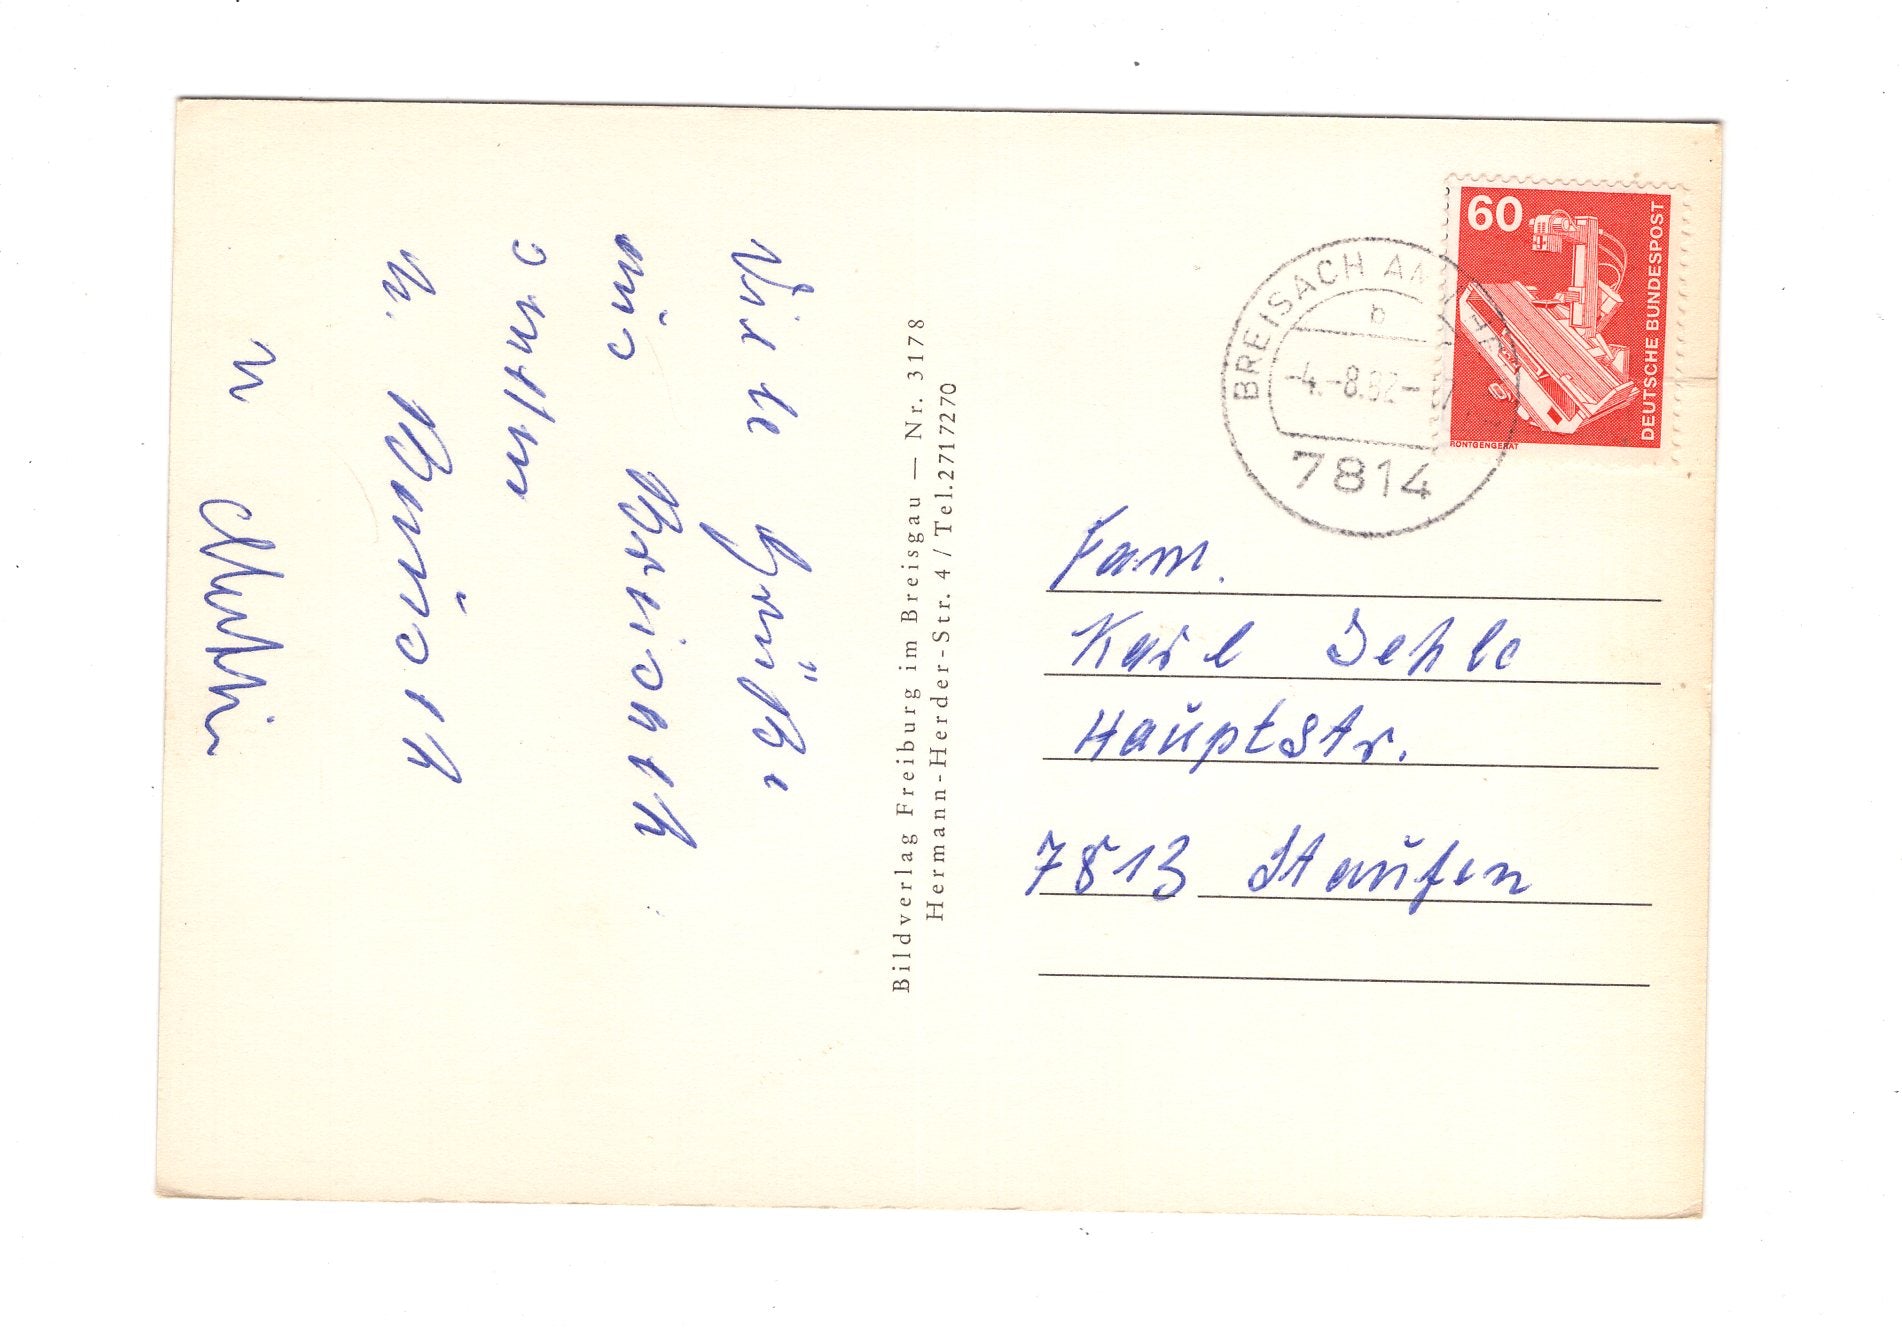 Viele Grüße
aus Breisach
senden
n. Martin
Bildverlag Freiburg im Breisgau — Nr. 3178
Hermann-Herder-Str. 4 / Tel. 2717270
60
DEUTSCHE BUNDESPOST
RÖNTGENGERÄT
BREISACH AM
b
-4.-8.82-
7814
Fam.
Karl Jehle
Hauptstr.
7813 Staufen